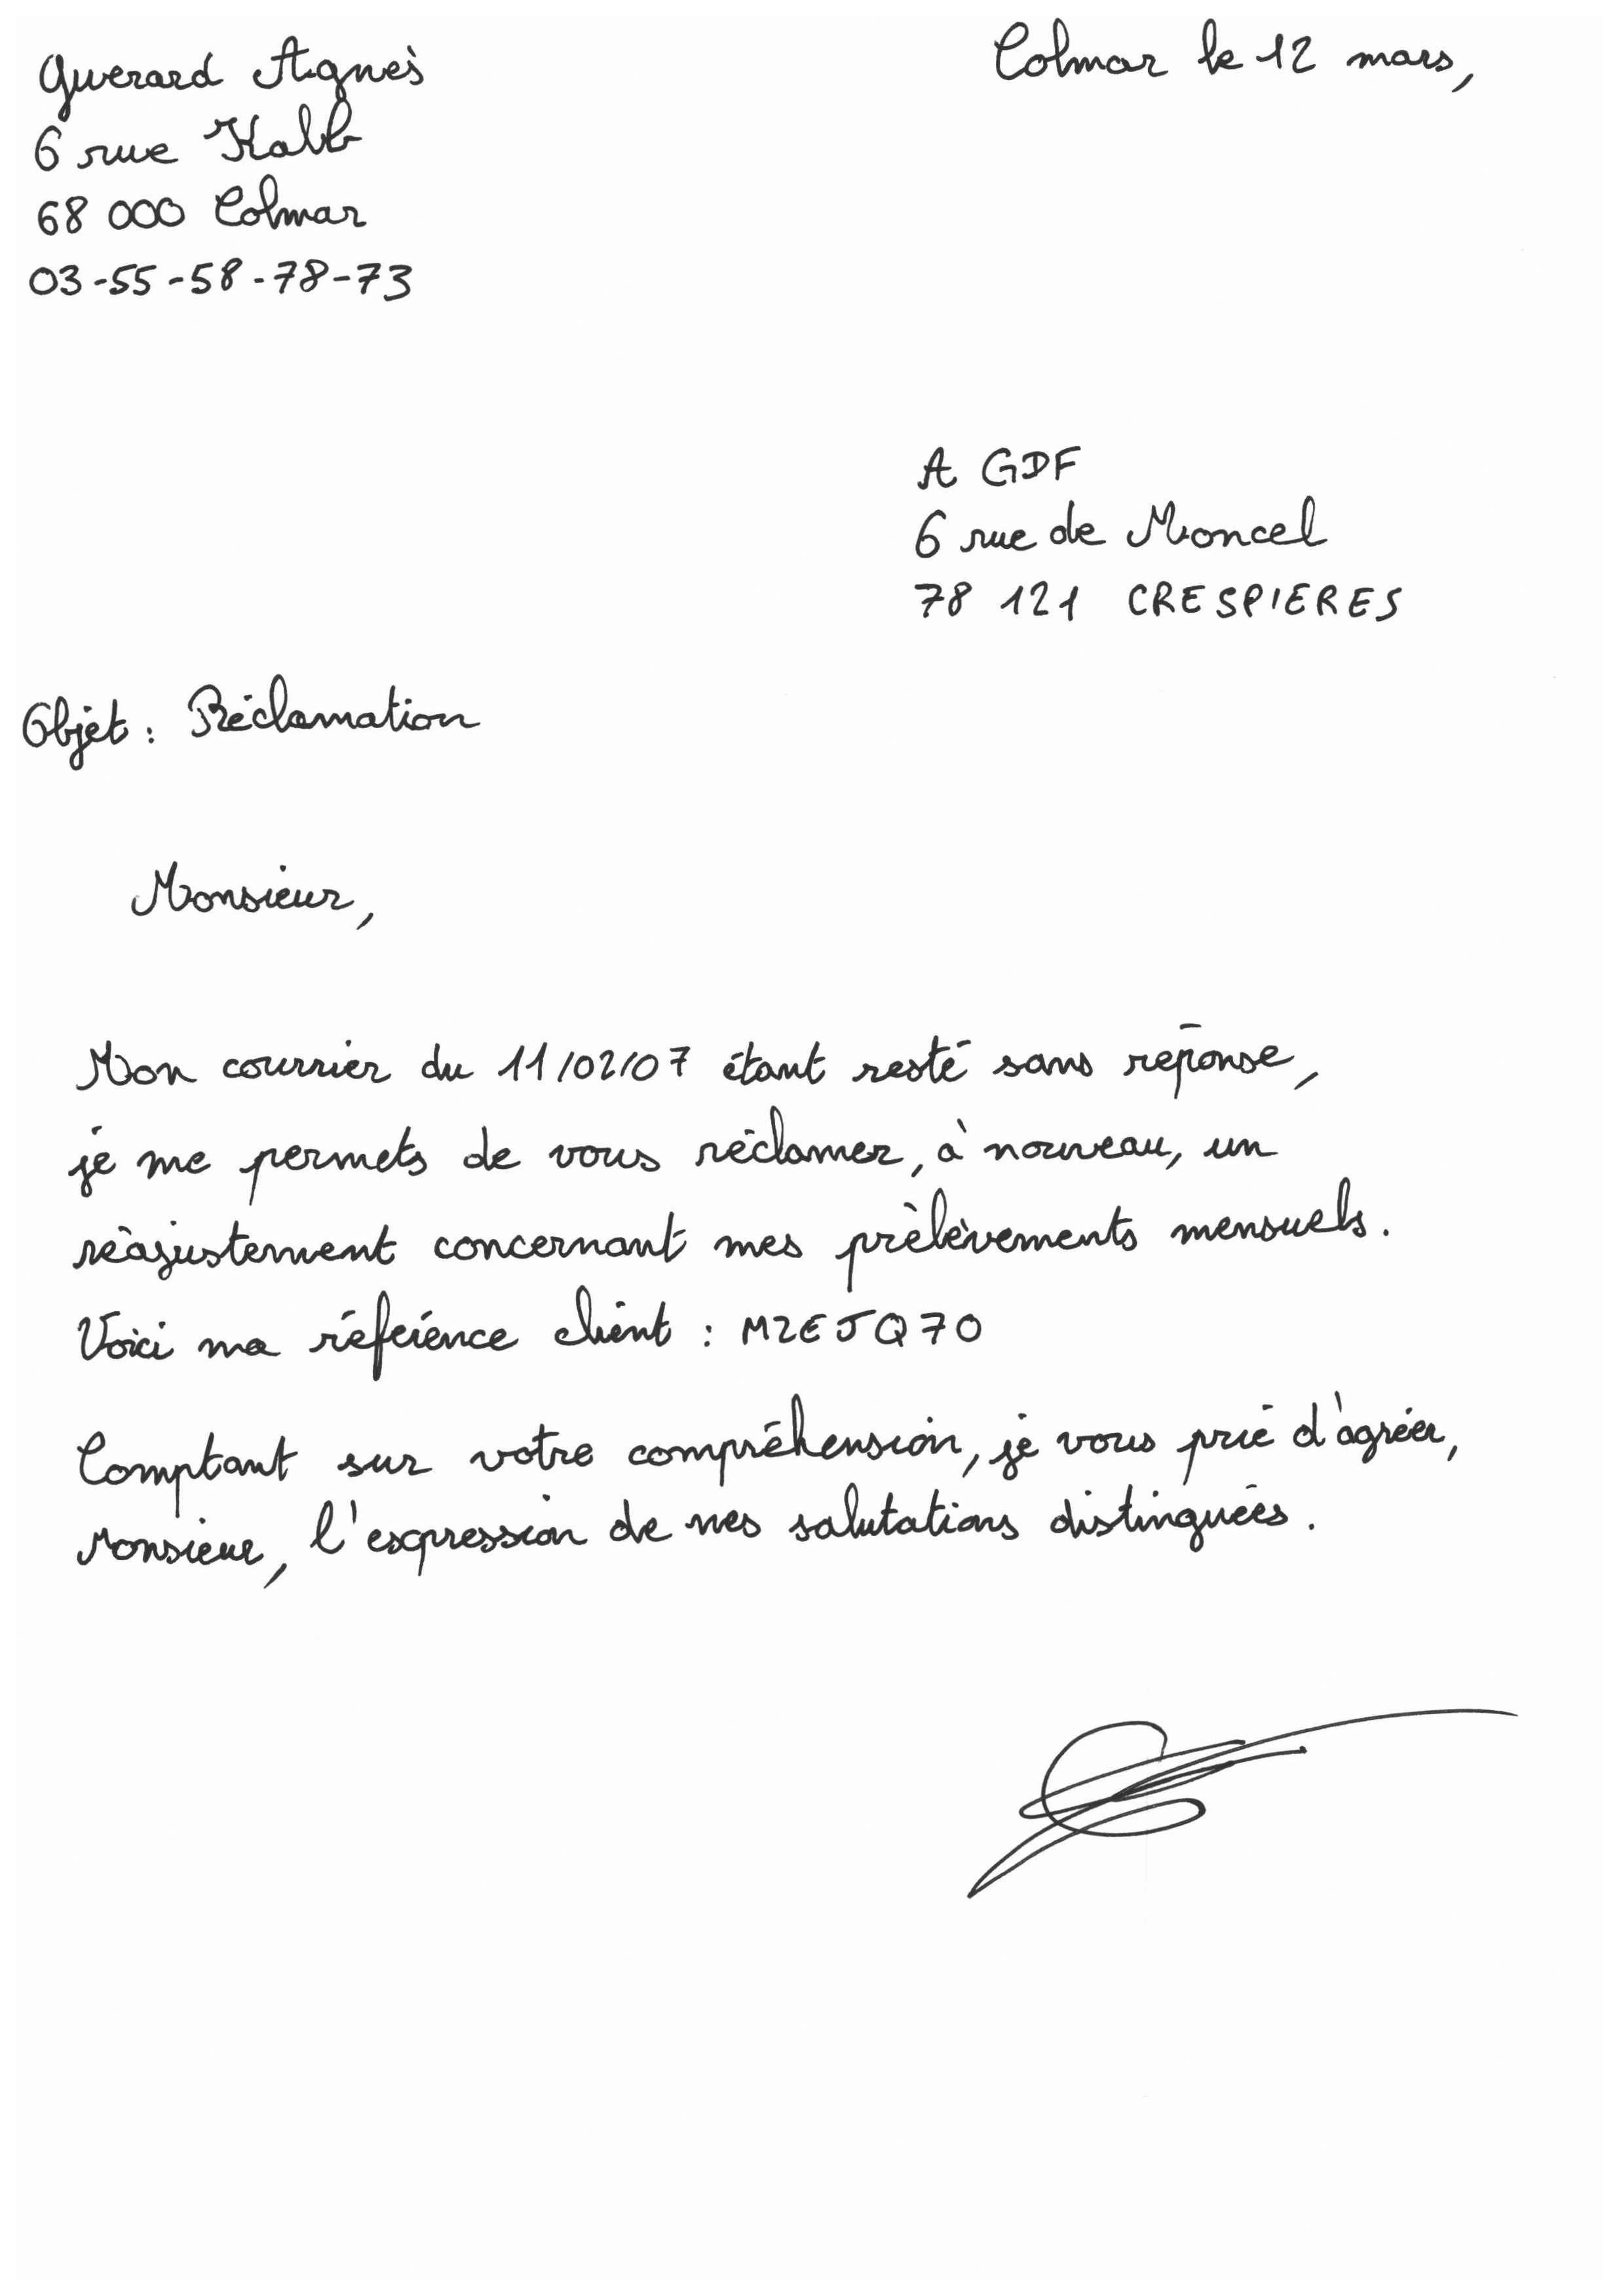 Guerard Agnès
Colmar le 12 mars,
6 rue Kalb
68 000 Colmar
03-55-58-78-73
A GDF
6 rue de Moncel
78 121 CRESPIERES
Objet : Réclamation
Monsieur,
Mon courrier du 11/02/07 étant resté sans réponse,
je me permets de vous réclamer, à nouveau, un
réajustement concernant mes prélèvements mensuels.
Voici ma référence client : M2EJQ70
Comptant sur votre compréhension, je vous prie d'agréer,
Monsieur, l'expression de mes salutations distinguées.